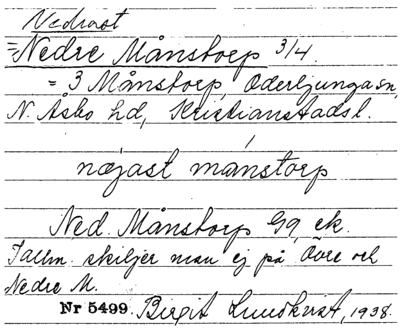 Vedraot
= Nedre Månstorp 3/4.
= 3 Månstorp, Oderljunga sn,
N. Åsbo hd, Kristianstads l.
næjast månstorp
Ned. Månstorp Gg, ek.
I allm. skiljer man ej på Övre och
Nedre M.
Nr 5499. Birgit Lundkvist, 1938.